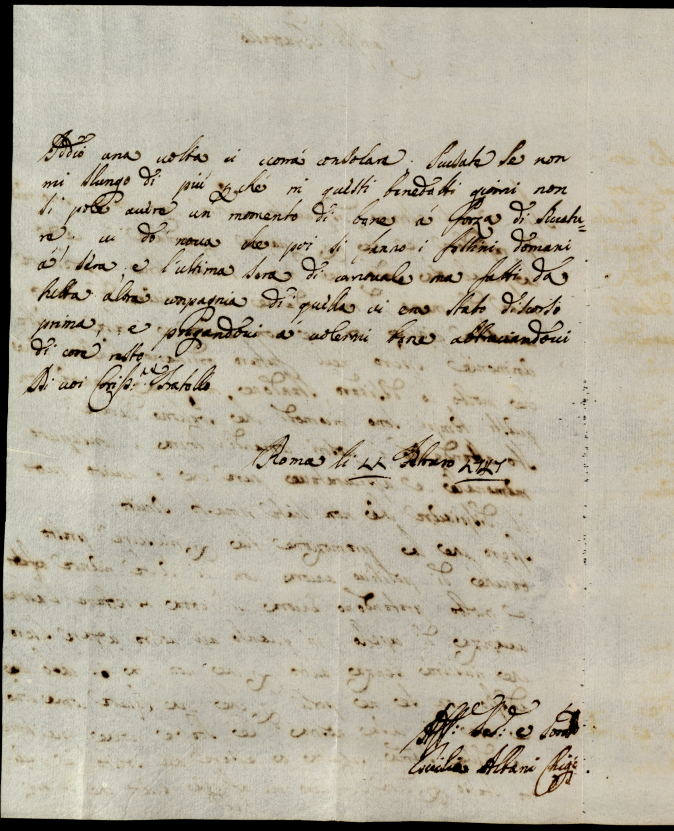 Iddio una volta vi vorrà consolare. Scusate se non
mi slungo di più perché in questi benedetti giorni non
si pole avere un momento di bene a forza di seccatu=
re. vi dò nova che poi si fanno i festini domani
a' sera, e l'ultima sera di carnevale ma fatti da
tutta altra compagnia di quella vi era stato discorso
prima, e pregandovi a' volermi bene abbracciandovi
di core resto
Di voi Cariss.mo Fratello
Roma li 11 Febraro 1747
Aff.ma Ser.a e Sorella
Cecilia Albani Chigi